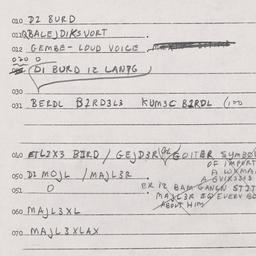 010 DI BURD
011 QBALEJDIKSVORT
012 GEMBE- LOUD VOICE
020 O
DI BURD IZ LANPG
030
031 BERDL BIRD3L3 KUMSC BIRDL (100
040 ETL2X3 BIRD / GEJD3R GOITER SYMBOL
OF IMPORT
050 DI MOJL / MAJL3R A WXMAN
051 O
ER IZ BAM GANGN STIT
MAJL3R EQ EVERY BO
ABOUT HIM
060 MAJL3XL
070 MAJL3XLAX